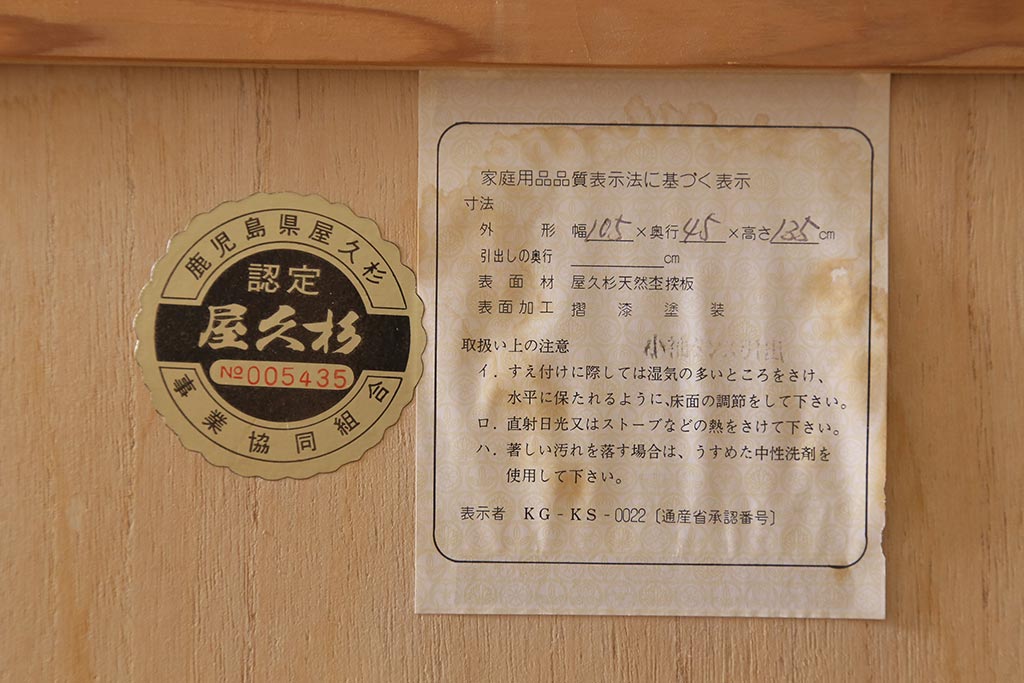 鹿児島県屋久杉
認定
屋久杉
№005435
事業協同組合
家庭用品品質表示法に基づく表示
寸法
外形 幅105×奥行45×高さ135cm
引出しの奥行 cm
表面材 屋久杉天然杢搾板
表面加工 摺漆塗装
取扱い上の注意
イ．すえ付けに際しては湿気の多いところをさけ、
水平に保たれるように、床面の調節をして下さい。
ロ．直射日光又はストーブなどの熱をさけて下さい。
ハ．著しい汚れを落す場合は、うすめた中性洗剤を
使用して下さい。
表示者 KG-KS-0022〔通産省承認番号〕